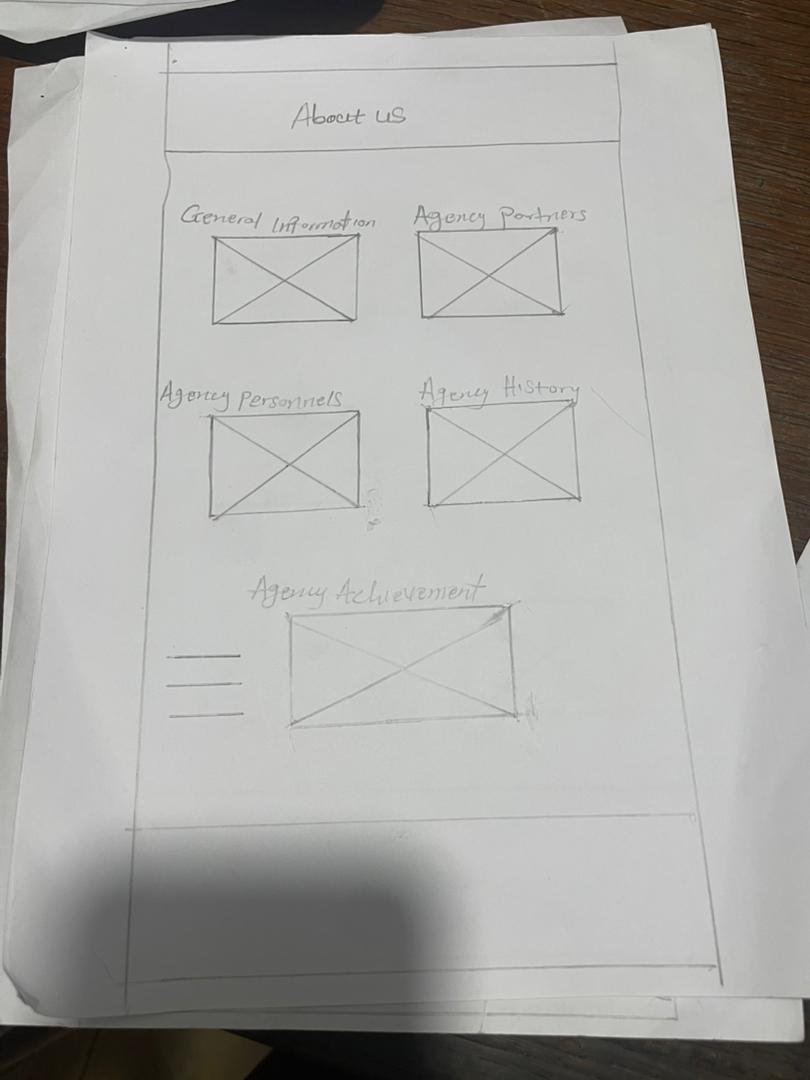 About us
General Information
Agency Partners
Agency Personnels
Agency History
Agency Achievement